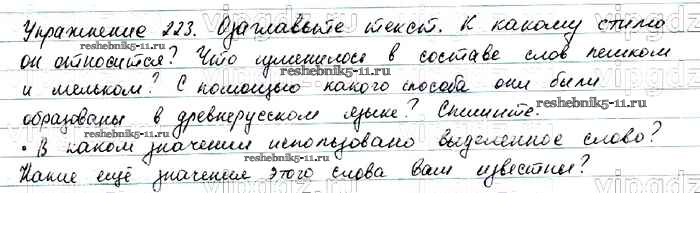 Упражнение 223. Озаглавьте текст. К какому стилю
он относится? Что изменилось в составе слов пешком
и мельком? С помощью какого способа они были
образованы в древнерусском языке? Спишите.
• В каком значении использовано выделенное слово?
Какие ещё значения этого слова вам известны?
reshebnik5-11.ru
reshebnik5-11.ru
reshebnik5-11.ru
reshebnik5-11.ru
reshebnik5-11.ru
reshebnik5-11.ru
vipgdz